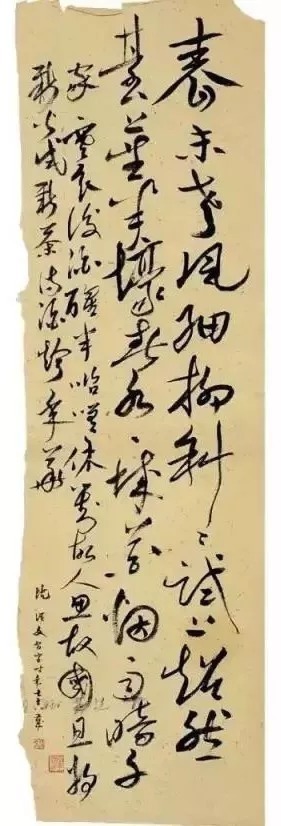 春未老風細柳斜々試上超然
臺半壕春水一城花烟雨暗千
家寒食後酒醒咨嗟休對故人思故國且將
新火試新茶詩酒趁年華